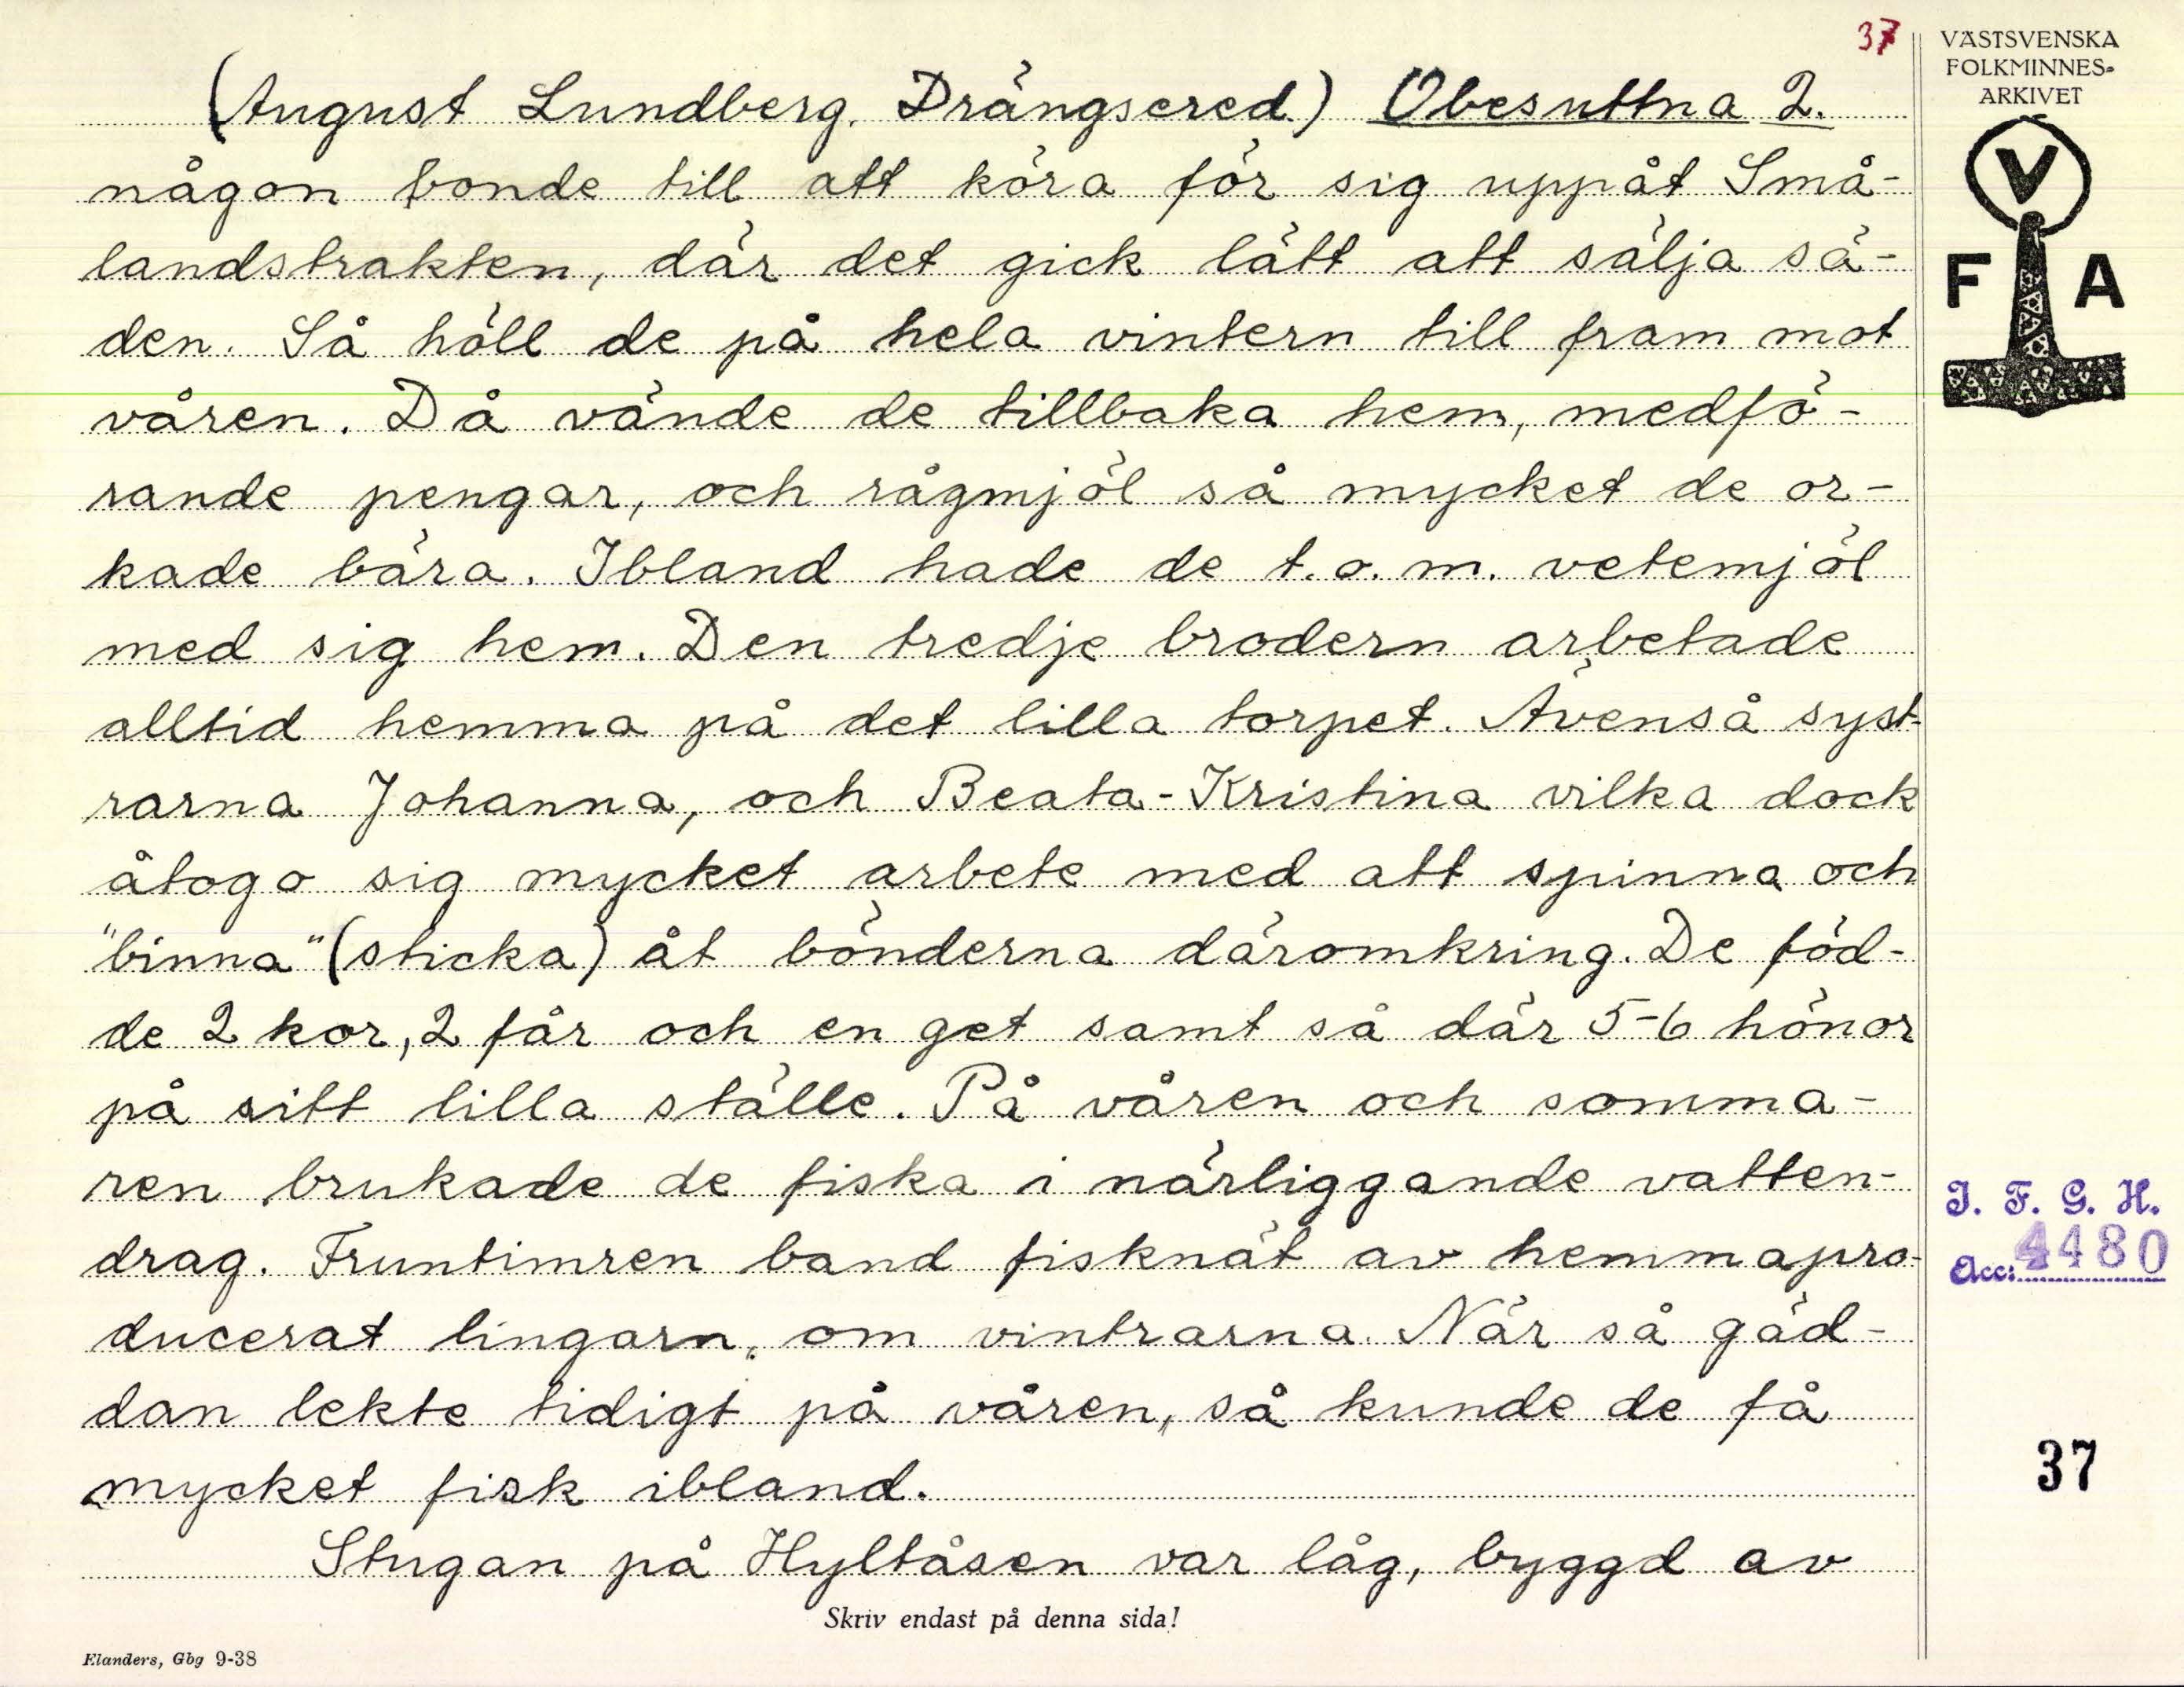 37
VÄSTSVENSKA
FOLKMINNES-
ARKIVET
(August Lundberg. Drängsered.) Obesuttna 2.
V
F A
någon bonde till att köra för sig uppåt Små-
landstrakten, där det gick lätt att sälja sä-
den. Så höll de på hela vintern till fram mot
våren. Då vände de tillbaka hem, medfö-
rande pengar, och rågmjöl så mycket de or-
kade bära. Ibland hade de t.o.m. vetemjöl
med sig hem. Den tredje brodern arbetade
alltid hemma på det lilla torpet. Ävenså syst-
rarna Johanna, och Beata-Kristina vilka dock
åtogo sig mycket arbete med att spinna och
"binna" (sticka) åt bönderna däromkring. De föd-
de 2 kor, 2 får och en get samt så där 5-6 hönor
på sitt lilla ställe. På våren och somma-
ren brukade de fiska i närliggande vatten-
drag. Fruntimren band fisknät av hemmapro-
ducerat lingarn, om vintrarna. När så gäd-
dan lekte tidigt på våren, så kunde de få
mycket fisk ibland.
Stugan på Hyltåsen var låg, byggd av
I. F. G. H.
Acc: 4480
37
Skriv endast på denna sida!
Elanders, Gbg 9-38